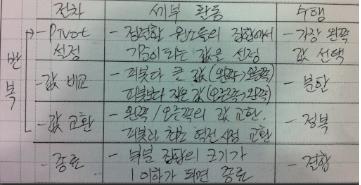 절차 세부 활동 수행
반복
- Pivot 설정 - 정렬할 원소의 집합에서 기준이 되는 값을 선정 - 가장 왼쪽 값 선택
- 값 비교 - 피봇보다 큰 값(왼쪽→오른쪽) 피봇보다 작은 값(오른쪽→왼쪽) - 분할
- 값 교환 - 왼쪽/오른쪽의 값 교환. 피봇과 교환 - 정복
- 종료 - 부분 집합의 크기가 1이하가 되면 종료 - 결합